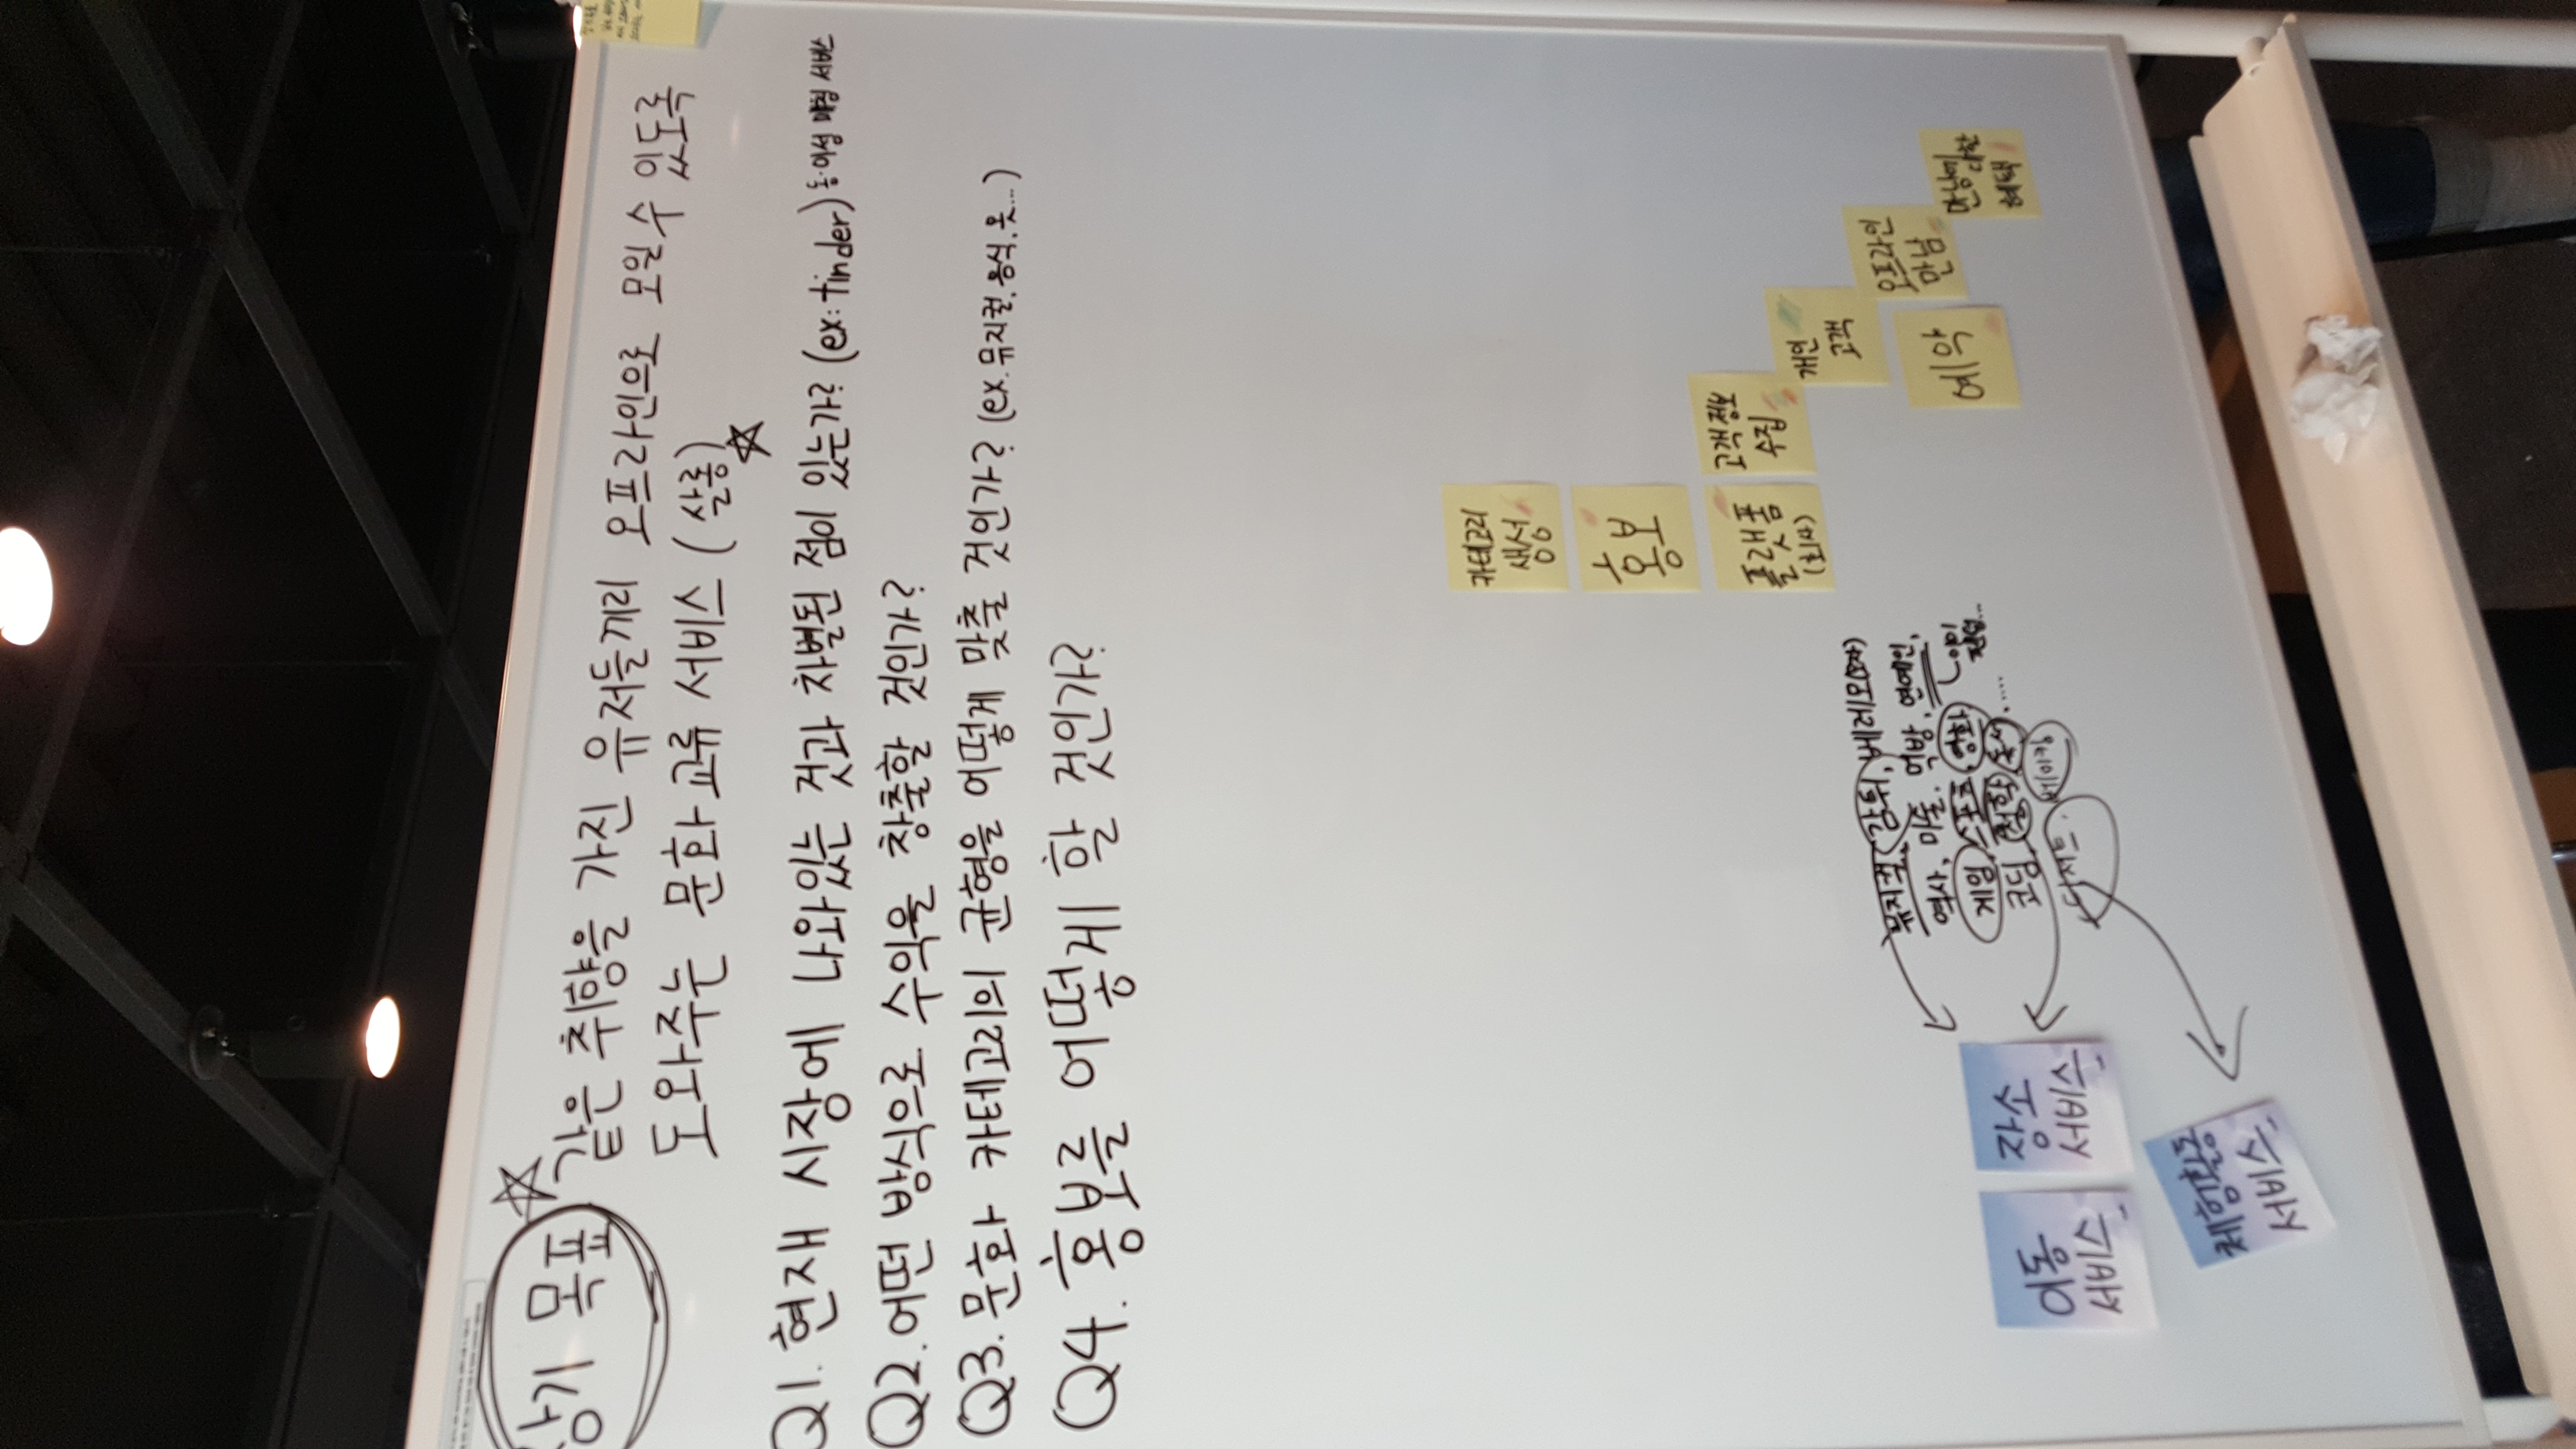 장기 목표
같은 취향을 가진 유저들끼리 오프라인으로 모일 수 있도록
도와주는 문화교류 서비스 (살롱)
Q1. 현재 시장에 나와있는 것과 차별된 점이 있는가? (ex: tinder) 동·이성 매칭 서비스
Q2. 어떤 방식으로 수익을 창출할 것인가?
Q3. 문화 카테고리의 균형을 어떻게 맞출 것인가? (ex. 뮤지컬, 음식, 옷...)
Q4. 홍보를 어떻게 할 것인가?
카테고리
생성
홍보
플랫폼
(회사)
고객정보
수집
개인
고객
오프라인
만남
예약
만남에
대한
혜택
뮤지컬, 감튀, 베레모(모자)
역사, 미술, 먹방, 연예인,
게임, 스포츠, 영화
이미
팬덤...
코딩, 철학, 독서, ....
디저트, 베이킹
이동
서비스
장소
서비스
체험활동
서비스